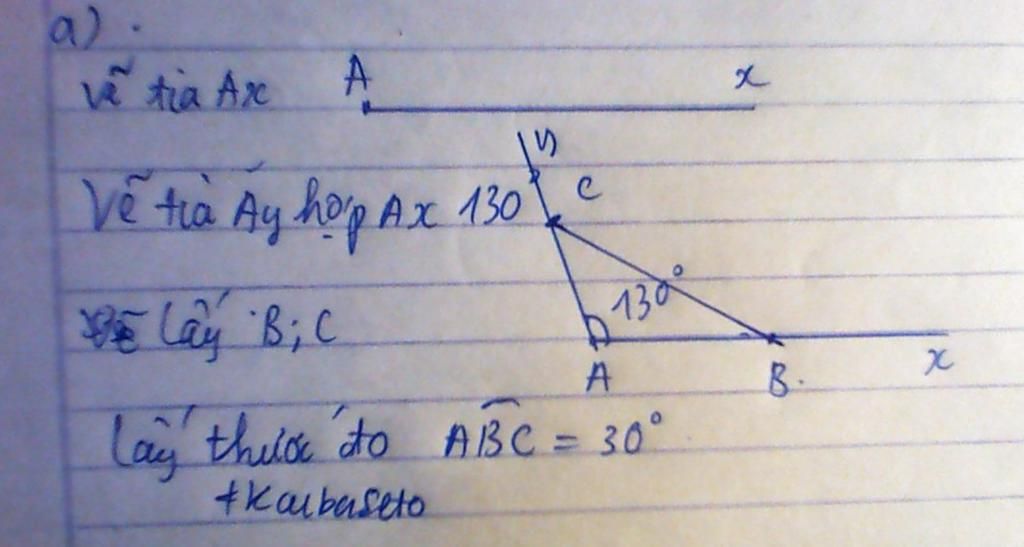 a).
Vẽ tia Ax A x
y
Vẽ tia Ay hợp Ax 130 C
130°
Lấy B; C
A B. x
Lấy thước đo ABC = 30°